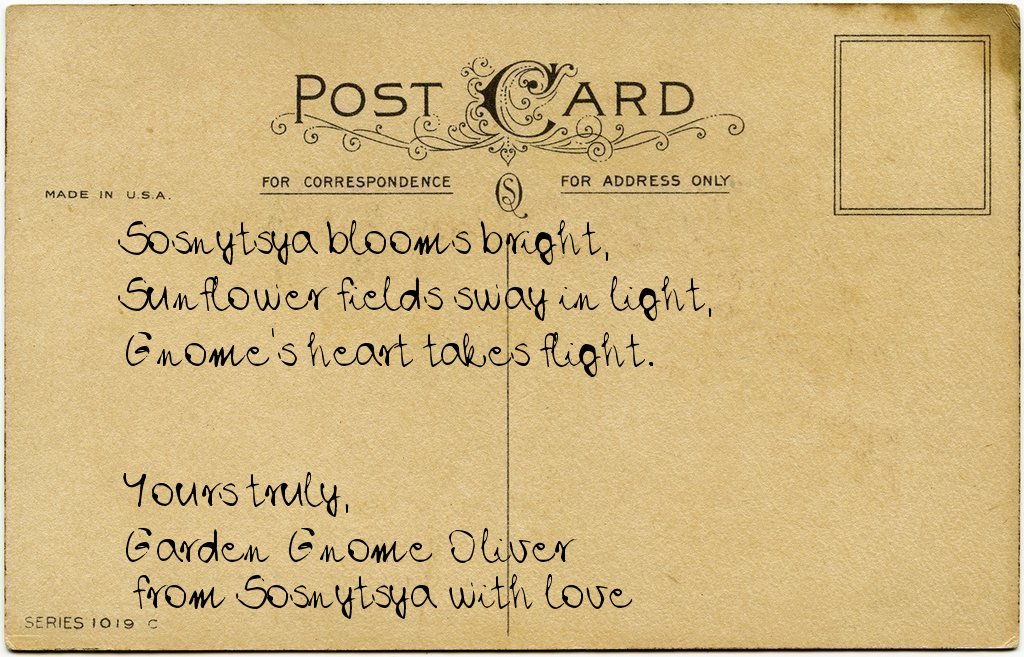 POST CARD
FOR CORRESPONDENCE
FOR ADDRESS ONLY
MADE IN U.S.A.
Sosnytsya blooms bright,
Sunflower fields sway in light,
Gnome's heart takes flight.
Yours truly,
Garden Gnome Oliver
from Sosnytsya with love
SERIES 1019 C